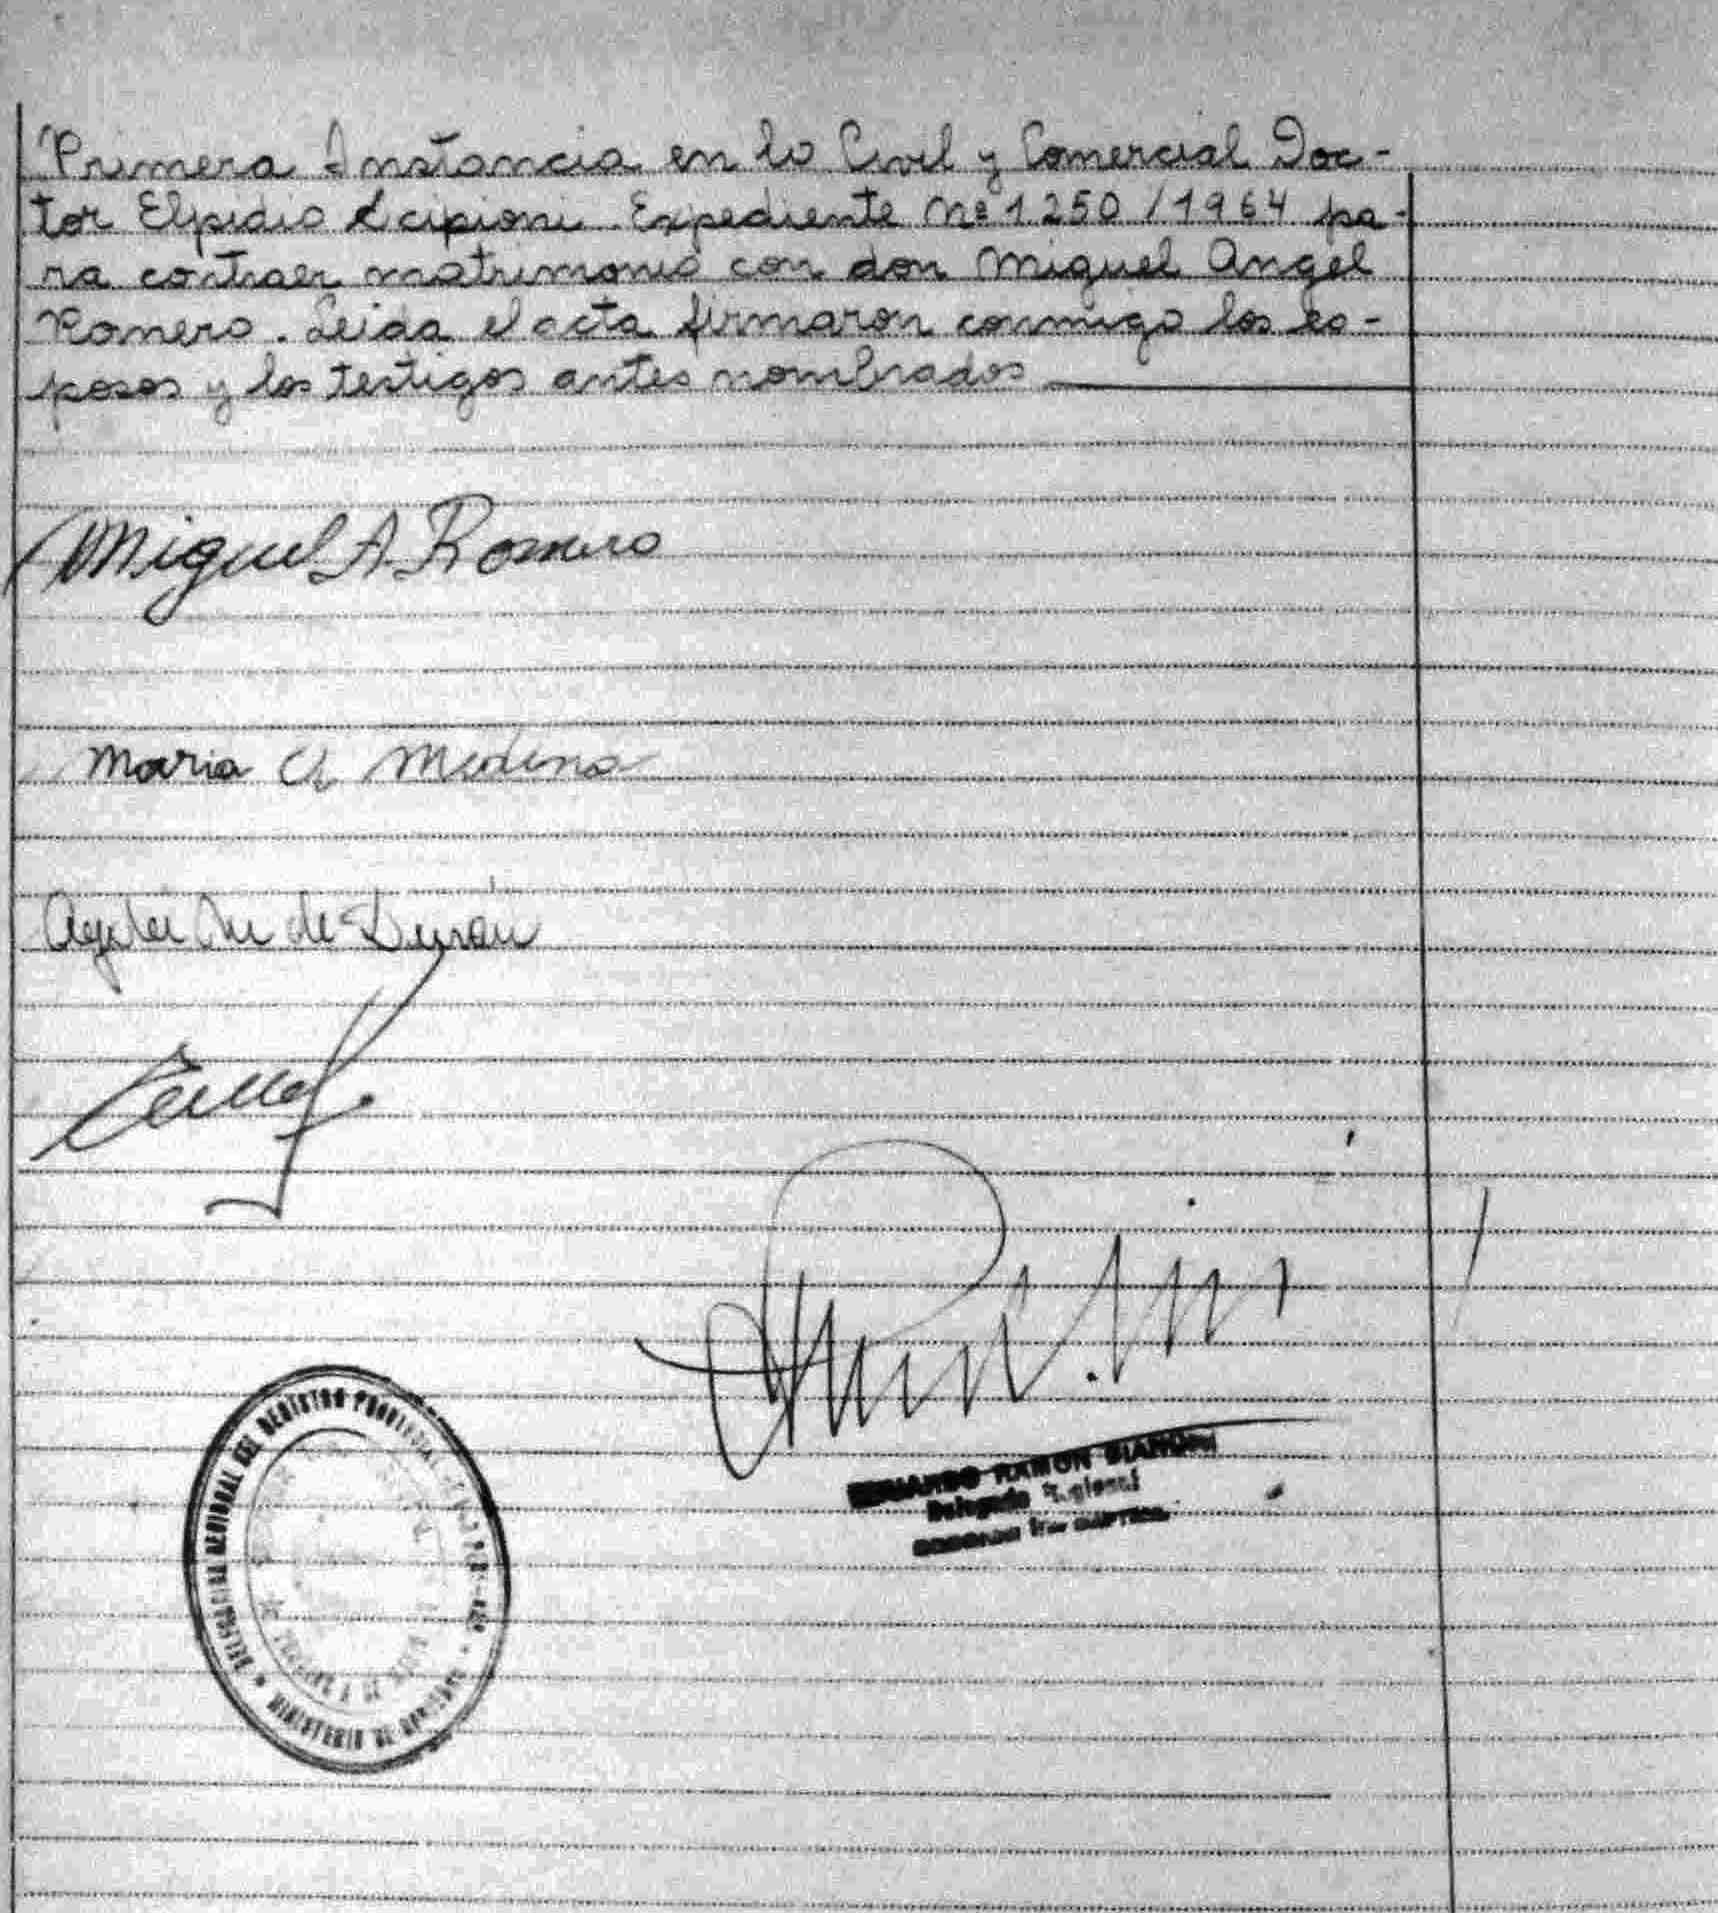 Primera Instancia en lo Civil y Comercial Doc-
tor Elpidio Scipioni. Expediente Nº 1250/1964 pa-
ra contraer matrimonio con don Miguel Angel
Romero. Leida el acta firmaron conmigo los es-
posos y los testigos antes nombrados
Miguel A. Romero
Maria A Medina
de Durán
RAMON
Delegado Regional
DELEGACION REGIONAL DEL REGISTRO PROVINCIAL
MINISTERIO DE